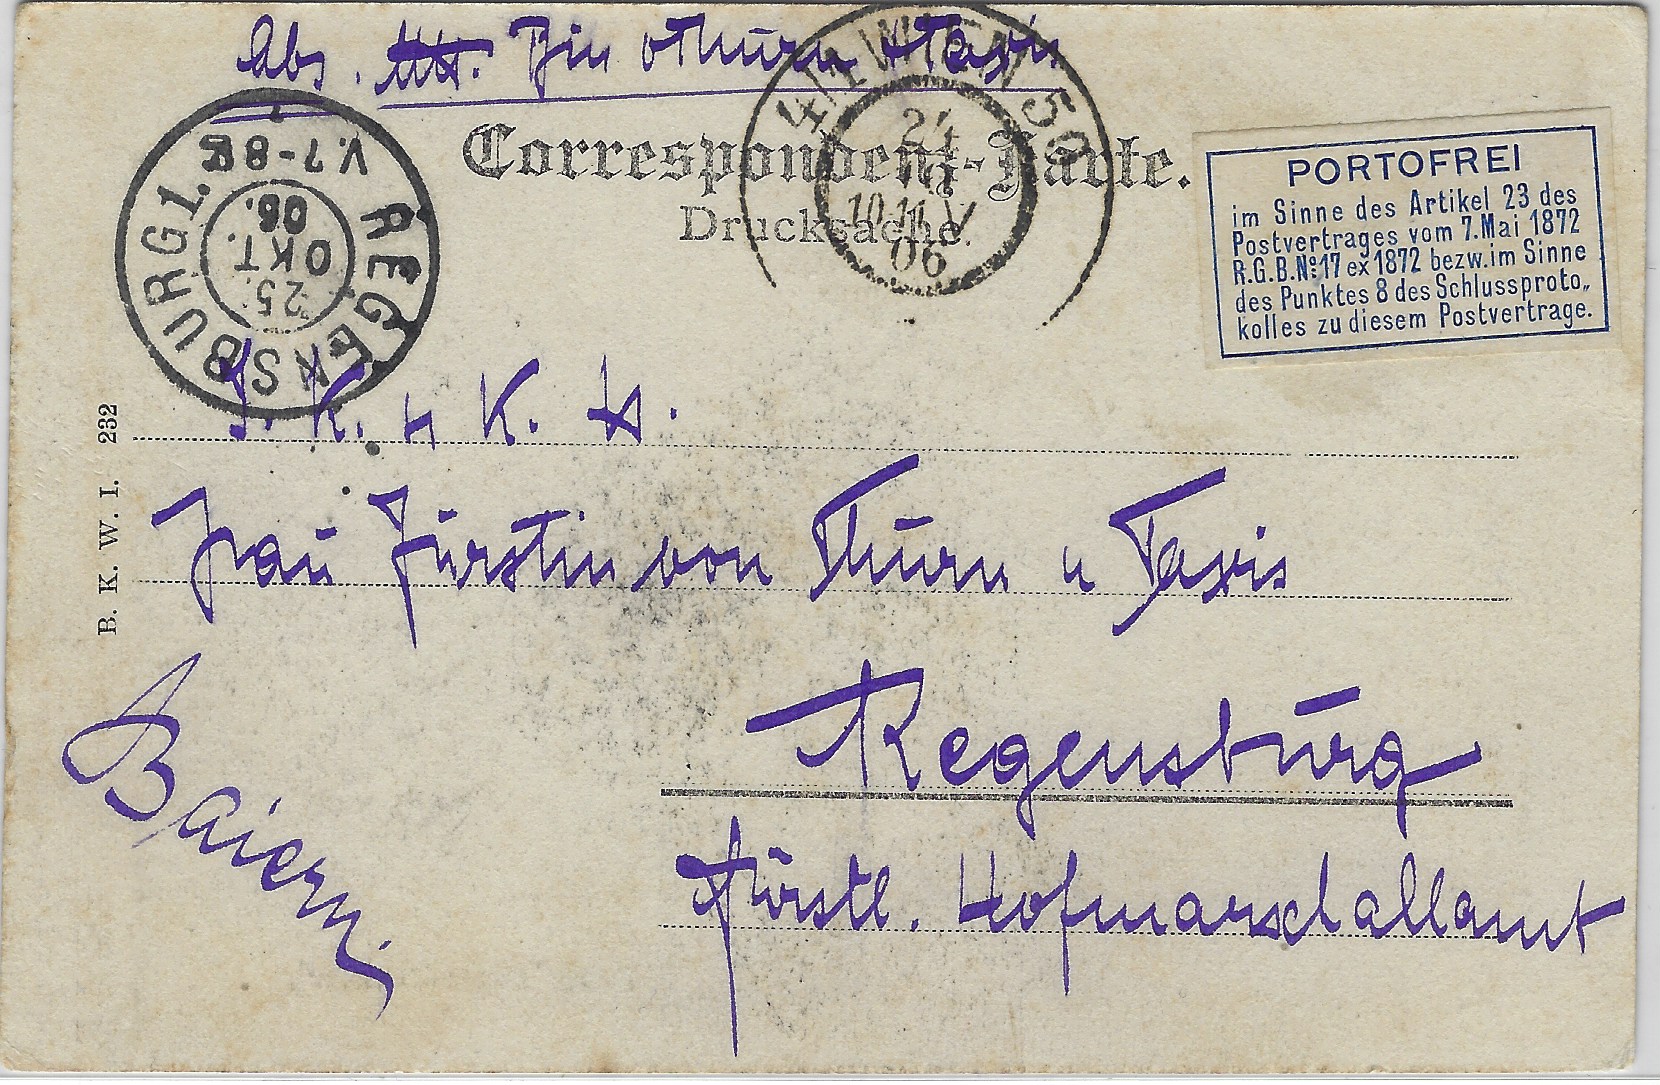 Abs. Thurn Taxis
Correspondenz-Karte.
Drucksache.
4/1 WIEN 50
24
X
10-11 V
06
REGENSBURG I.
V. 7-8
25.
OKT.
06.
PORTOFREI
im Sinne des Artikel 23 des
Postvertrages vom 7. Mai 1872
R.G.B. No 17 ex 1872 bezw. im Sinne
des Punktes 8 des Schlussproto„
kolles zu diesem Postvertrage.
I. K. u K. H.
Frau Fürstin von Thurn u Taxis
Regensburg
fürstl. Hofmarschallamt
Baiern.
B. K. W. I. 232